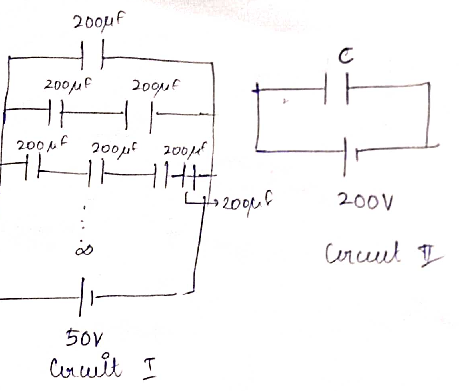 200μF
200μF 200μF
200μF 200μF 200μF
200μF
∞
50V
Circuit I
C
200V
Circuit II